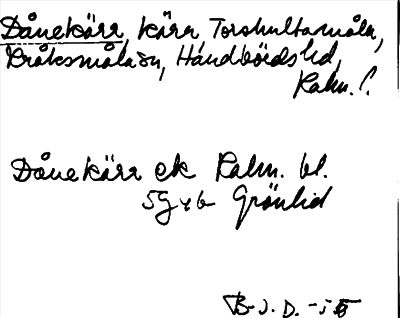 Dånekärr, kärr Torshultamåla,
Kråksmåla sn, Handbörds hd,
Kalm. l.
Dånekärr ek Kalm. bl.
5G y b Grönlid
B-J. D. -58